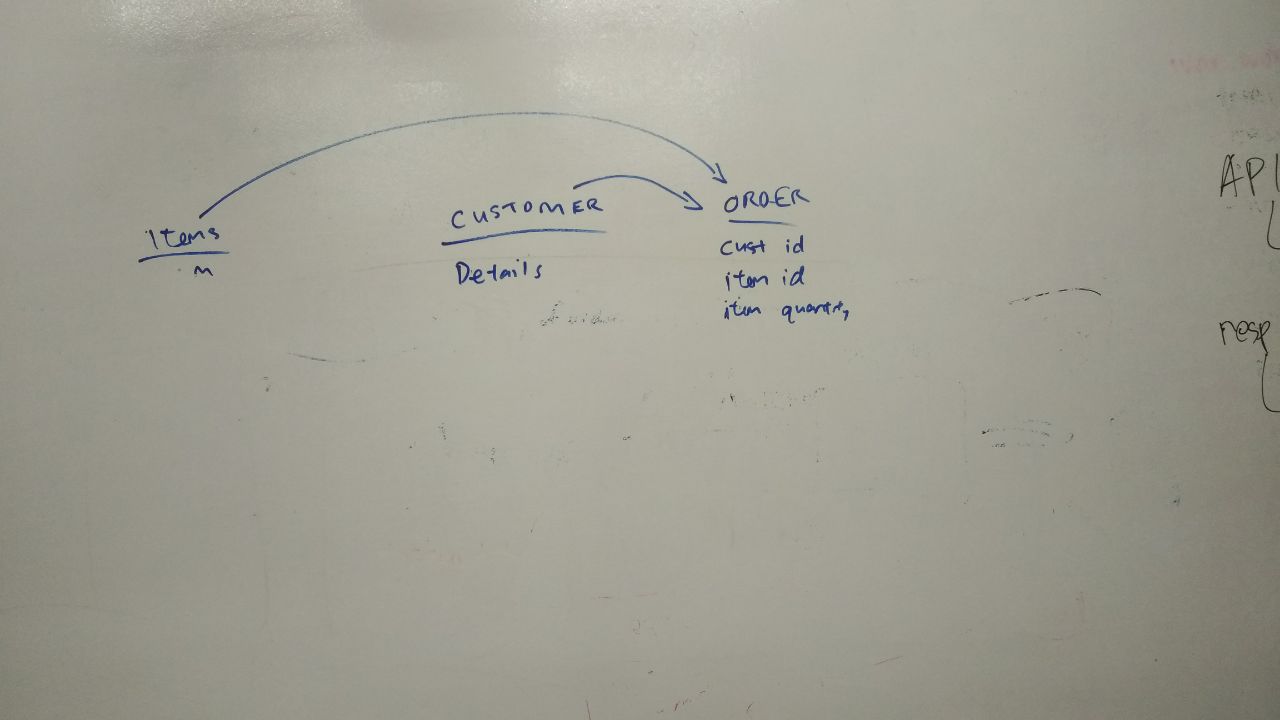 Items
m
CUSTOMER
Details
ORDER
Cust id
item id
item quantity
API
resp